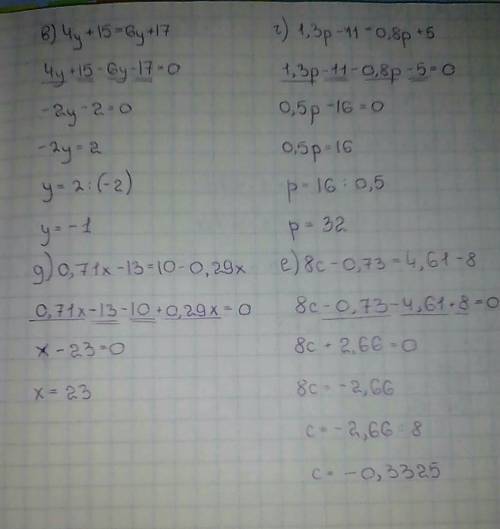 в) 4y+15=6y+17
4y+15-6y-17=0
-2y-2=0
-2y=2
y=2:(-2)
y=-1
г) 1,3p-11=0,8p+5
1,3p-11-0,8p-5=0
0,5p-16=0
0,5p=16
p=16:0,5
p=32
д) 0,71x-13=10-0,29x
0,71x-13-10+0,29x=0
x-23=0
x=23
е) 8c-0,73=4,61-8
8c-0,73-4,61+8=0
8c+2,66=0
8c=-2,66
c=-2,66:8
c=-0,3325